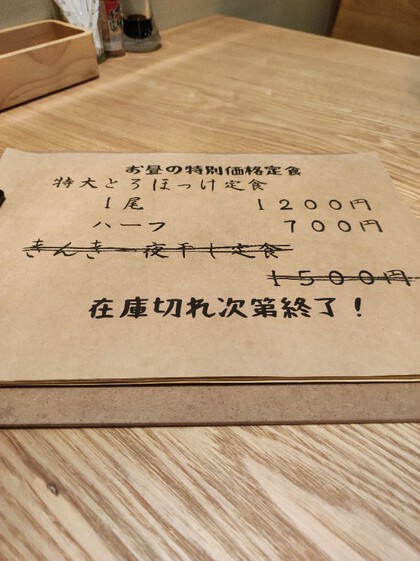 お昼の特別価格定食
特大とろほっけ定食
1尾 1200円
ハーフ 700円
きんき一夜干し定食
1500円
在庫切れ次第終了!